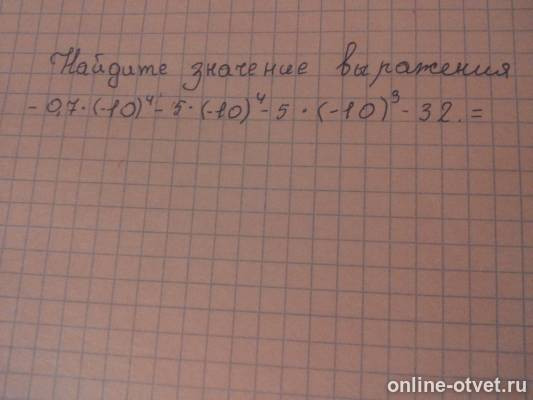 Найдите значение выражения
- 0,7 · (-10)⁴ - 5 · (-10)⁴ - 5 · (-10)³ - 32. =
online-otvet.ru